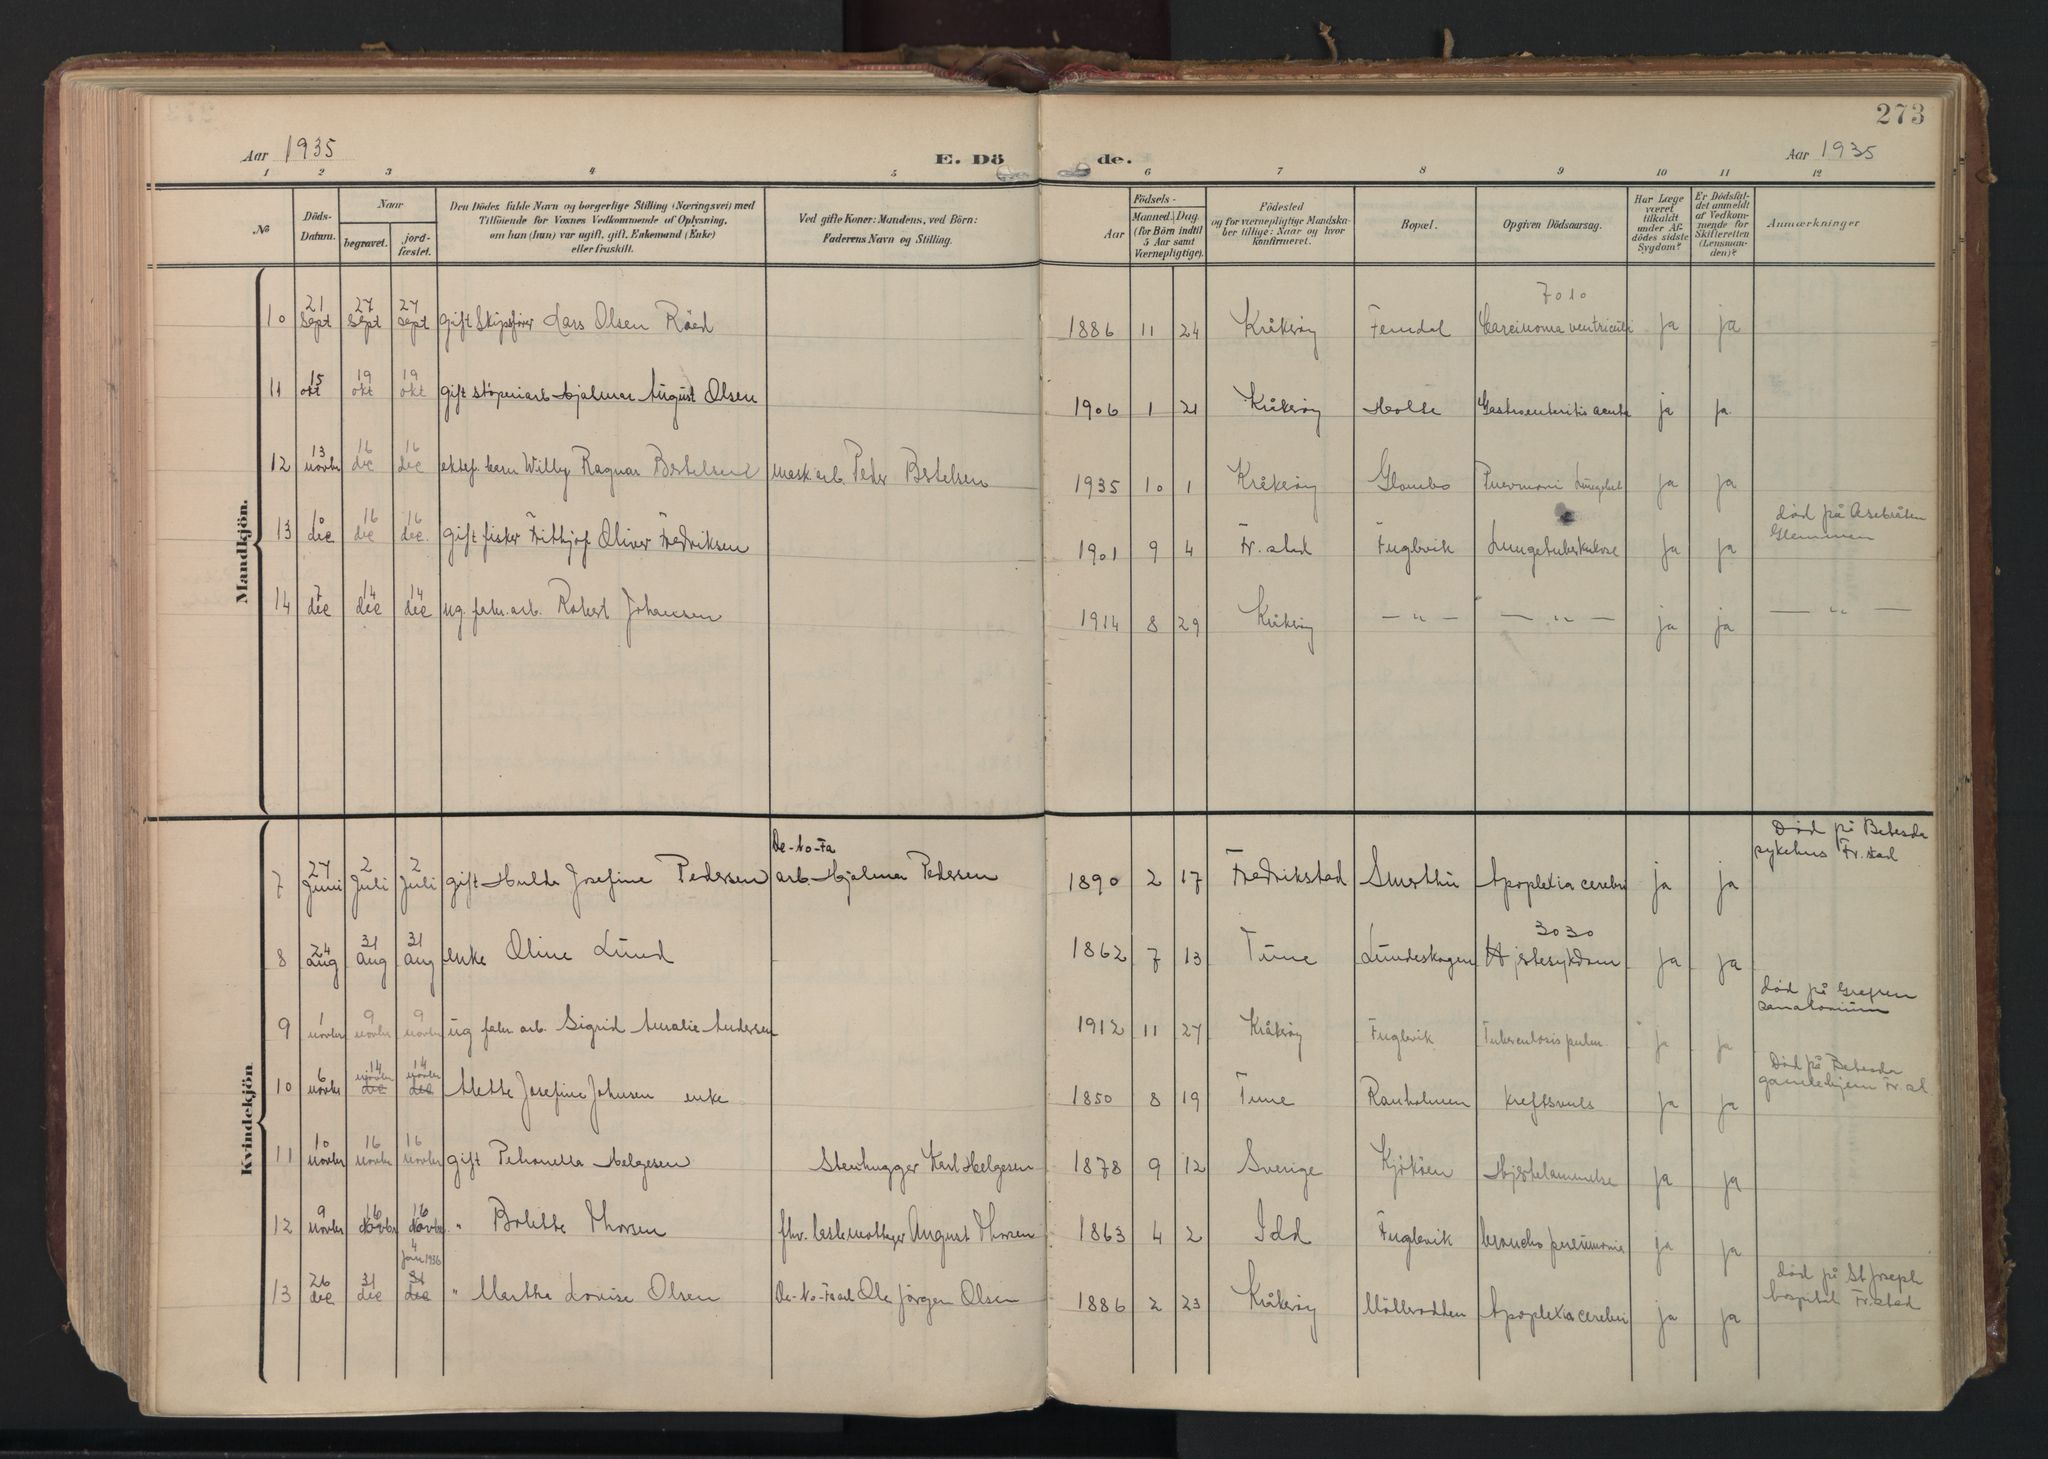 273
Aar 1935
E. Dö
de.
Aar 1935
1 2 3 4 5 6 7 8 9 10 11 12
№
Döds-
Datum.
Naar
begravet.
jord-
fæstet.
Den Dödes fulde Navn og borgerlige Stilling (Næringsvei) med
Tilföiende for Voxnes Vedkommende af Oplysning,
om han (hun) var ugift, gift, Enkemand (Enke)
eller fraskilt.
Ved gifte Koner: Mandens, ved Börn:
Faderens Navn og Stilling.
Födsels-
Aar
Maaned. Dag.
(for Börn indtil
5 Aar samt
Værnepligtige).
Födested
og for værnepligtige Mandska-
ber tillige: Naar og hvor
konfirmeret.
Bopæl.
Opgiven Dödsaarsag.
Har Læge
været
tilkaldt
under Af-
dödes sidste
Sygdom?
Er Dödsfal-
det anmeldt
af Vedkom-
mende for
Skifteretten
(Lensman-
den)?
Anmærkninger
Mandkjön.
10 21 sept 27 sept 27 sept gift Skipsfører Lars Olsen Röed 1886 11 24 Kråkerøy Femdal 7010 Carcinoma ventriculi ja ja
11 15 okt 19 okt 19 okt gift støperiarb Hjalmar August Olsen 1906 1 21 Kråkerøy Holte Gastroenteritis acuta ja ja
12 13 novbr 16 dec 16 dec ektef. barn Willy Ragnar Bertelsen mask arb. Peder Bertelsen 1935 10 1 Kråkerøy Glombo Pnevmoni ja ja
13 10 dec 16 dec 16 dec. gift fisker Frithjof Oliver Fredriksen 1901 9 4 Fr. stad Fuglevik Lungetuberkulose ja ja død på Asebråten
Glemmen
14 7 dec 14 dec 14 dec ug. fabr. arb. Robert Johansen 1914 8 29 Kråkerøy — " — — " — ja ja — " —
Kvindekjön
7 27 Juni 2 Juli 2 Juli gift Hulda Josefine Pedersen De-No-Fa arb. Hjalmar Pedersen 1890 2 17 Fredrikstad Smerthu Apoplexia cerebri ja ja Død på Betesda
sykehus Fr. stad
8 24 aug 31 aug 31 aug enke Oline Lund 1862 7 13 Tune Lundeskogen 3030 Hjertesykdom ja ja
9 1 novbr 9 novbr 9 novbr ug fabr. arb. Sigrid Amalie Andersen 1912 11 27 Kråkerøy Fuglevik Tuberculosis pulm. ja ja død på Grefsen
sanatorium
10 6 novbr 14 novbr dec 14 novbr dec Mette Josefine Johnsen enke 1850 8 19 Tune Rauholmen kreftsvuls ja ja Død på Betesda
gamlehjem Fr. st
11 10 novbr 16 novbr 16 novbr gift Petronella Helgesen Stenhugger Karl Helgesen 1878 9 12 Sverige Kjøkøen Hjertelammelse ja ja
12 9 novbr 16 novbr 16 novbr " Bolette Thorsen fhv. lastemottager August Thorsen 1863 4 2 Idd Fuglevik broncho pneumonia ja ja
13 26 dec 31 dec 4 Jan 1936 31 dec " Marthe Lovise Olsen De-No-Fa arb Ole Jörgen Olsen 1886 2 23 Kråkerøy Möllerodden Apoplexia cerebri ja ja død på St Joseph
hospital Fr. stad